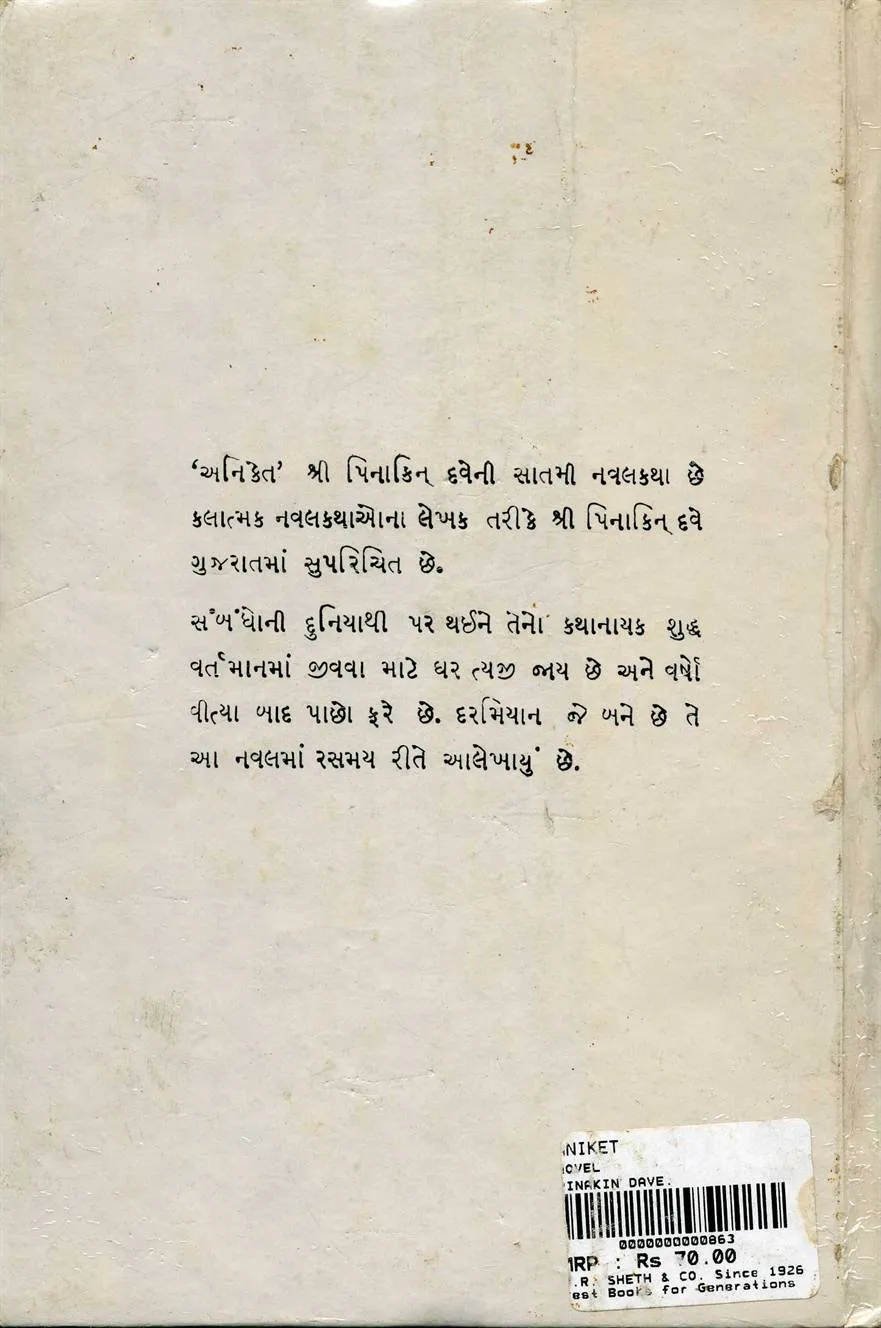 ‘અનિકેત’ શ્રી પિનાકિન્ દવેની સાતમી નવલકથા છે
કલાત્મક નવલકથાઓના લેખક તરીકે શ્રી પિનાકિન્ દવે
ગુજરાતમાં સુપરિચિત છે.
સંબંધોની દુનિયાથી પર થઈને તેનો કથાનાયક શુદ્ધ
વર્તમાનમાં જીવવા માટે ઘર ત્યજી જાય છે અને વર્ષો
વીત્યા બાદ પાછો ફરે છે. દરમિયાન જે બને છે તે
આ નવલમાં રસમય રીતે આલેખાયું છે.
NIKET
OVEL
INAKIN DAVE.
0000000000863
MRP : Rs 70.00
.R. SHETH & CO. Since 1926
est Books for Generations